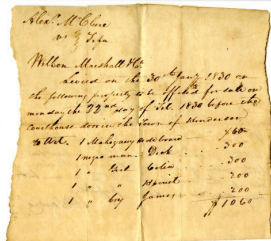 Alexr. McClure
vs } Fifa
Wilson Marshall &Co
Levied on the 30th Jany 1830 on
the following property to be offered for sale on
monday the 22nd day of Feb. 1830 before the
courthouse door in the Town of Henderson
to Wit. 1 Mahogany sideboard $60
1 negro man Dick . 300
1 " Celia . 300
1 " " Harriet . 200
1 " boy James . 200
$1060